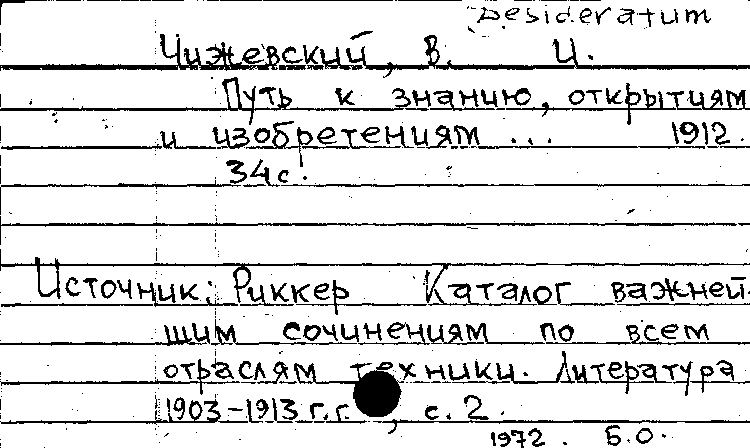 Desideratum
Чижевский, В. И.
Путь к знанию, открытиям
и изобретениям ... 1912.
34с.
Источник: Риккер Каталог важней-
шим сочинениям по всем
отраслям техники. Литература
1903-1913 г.г., с. 2.
1972. Б.О.